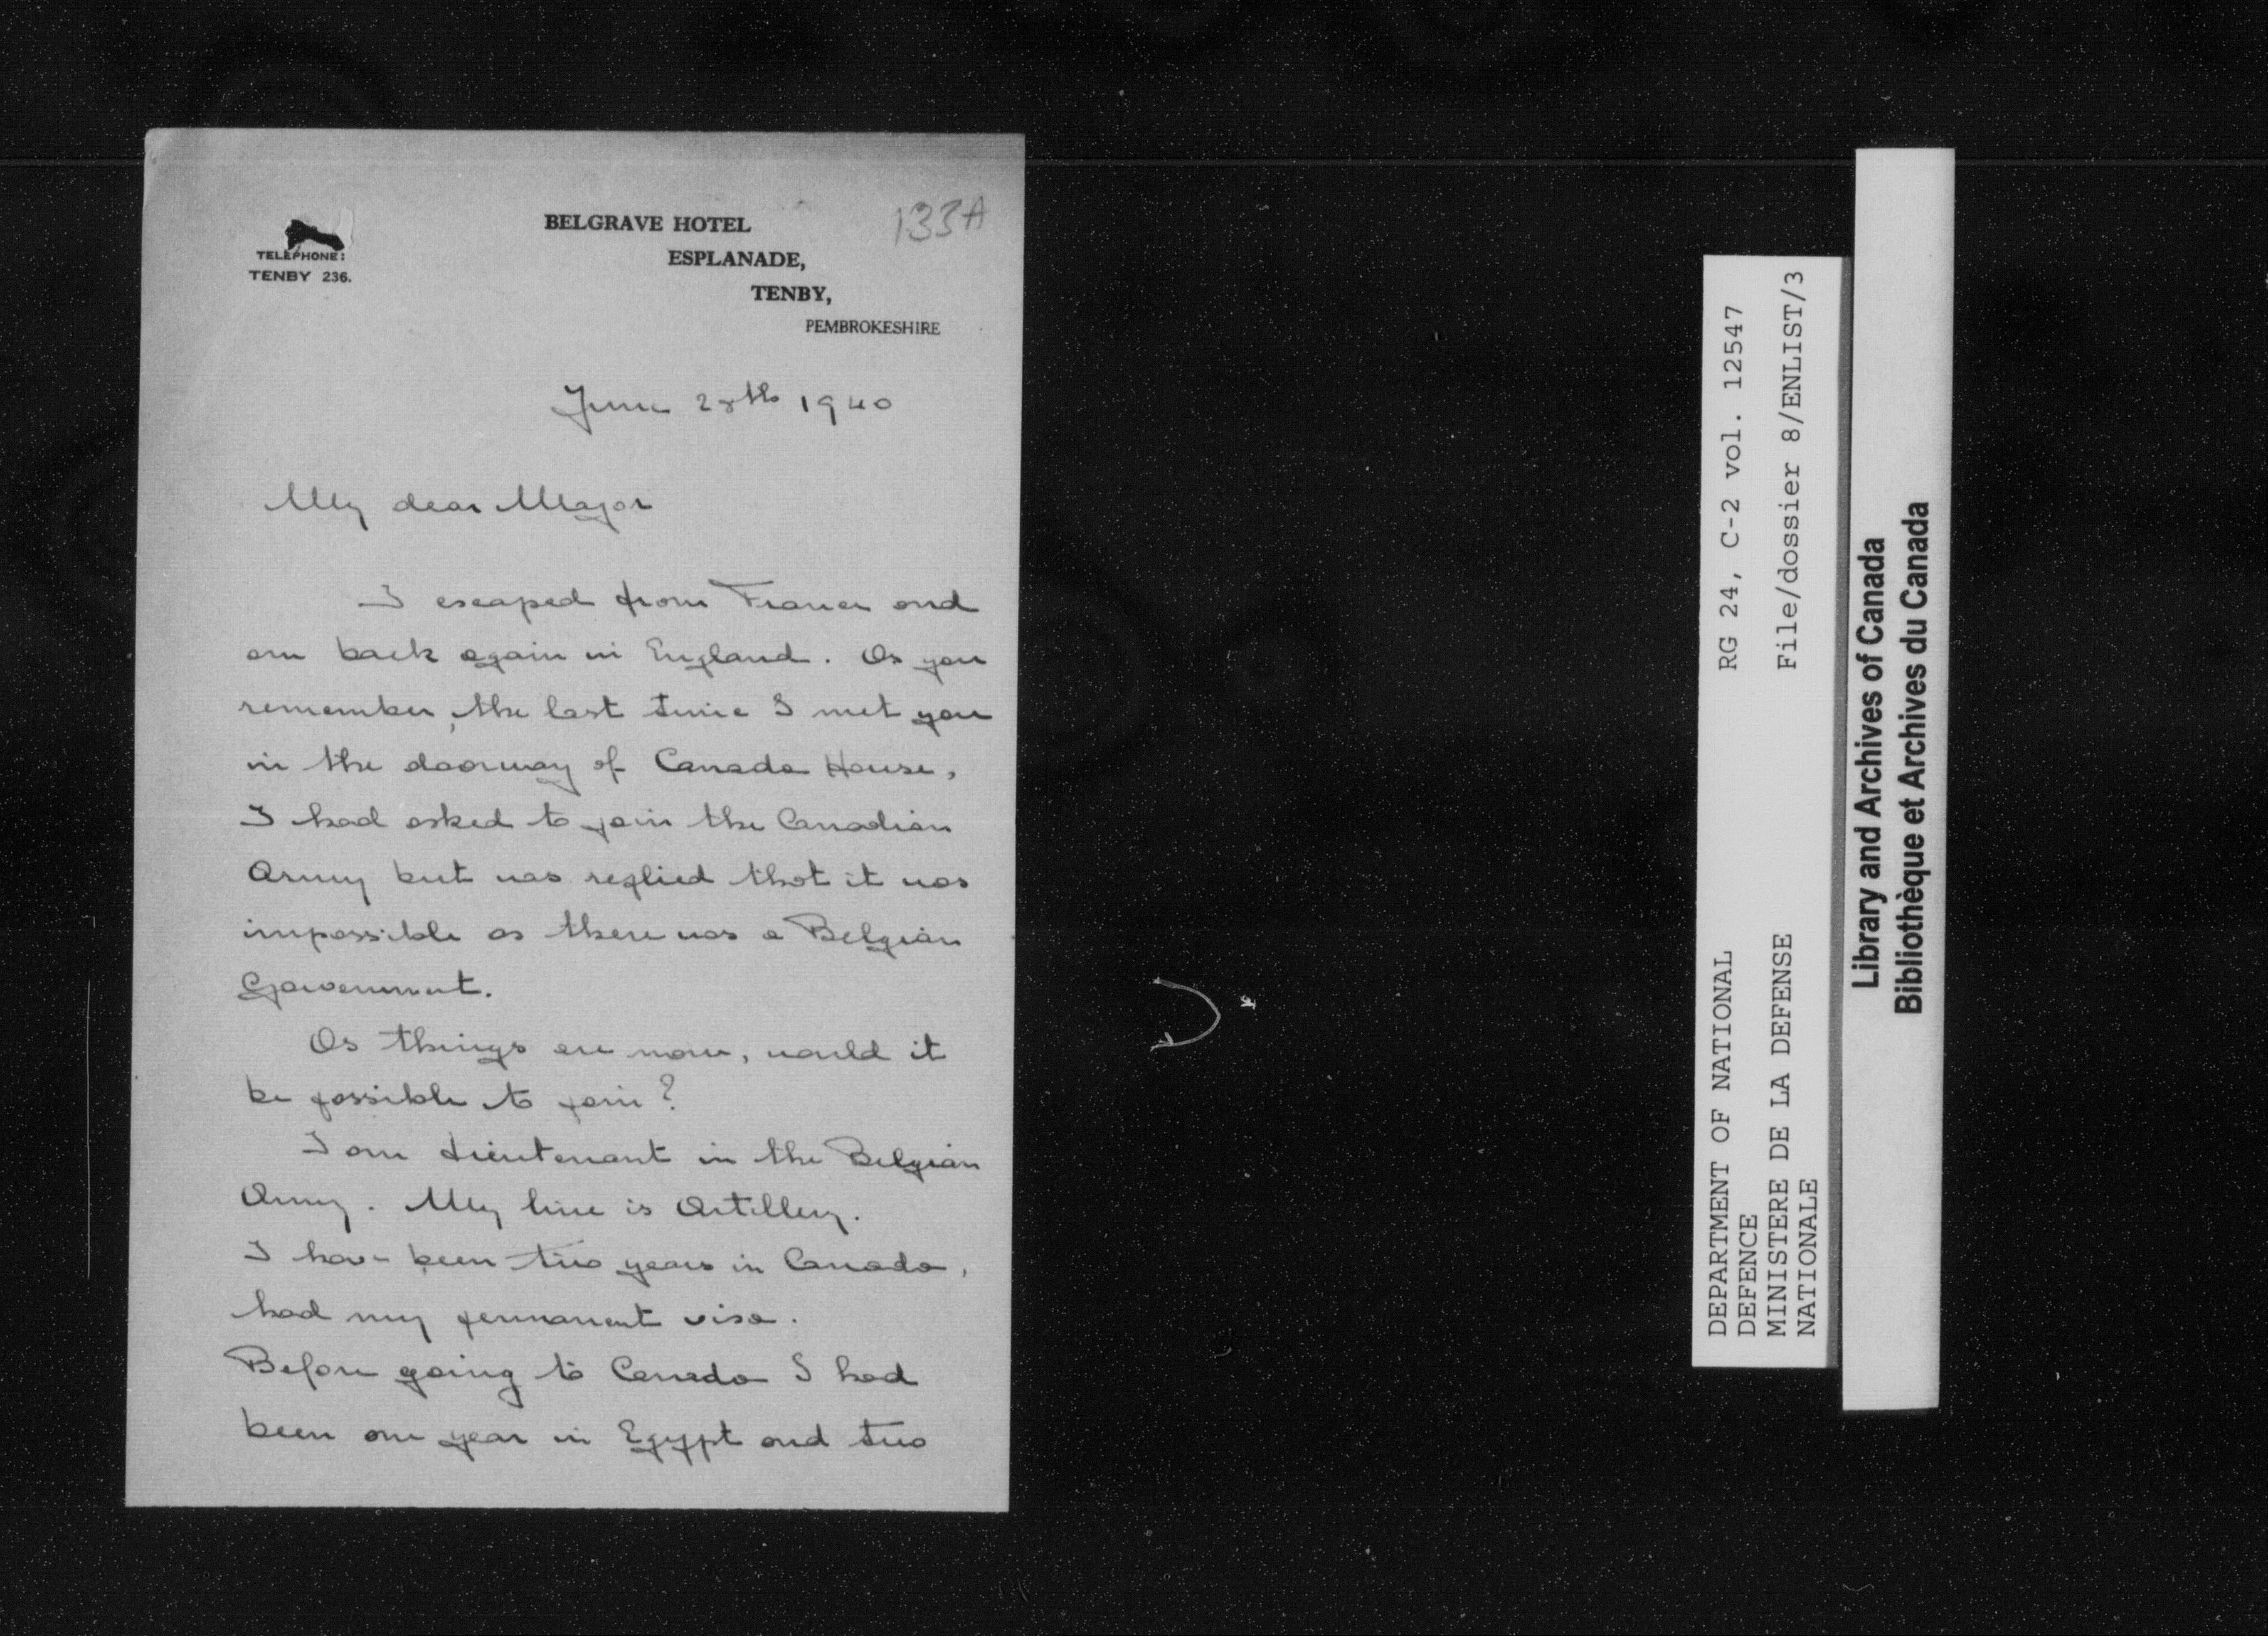 133A
BELGRAVE HOTEL
ESPLANADE,
TENBY,
PEMBROKESHIRE
TELEPHONE:
TENBY 236.
June 28th 1940
My dear Major
I escaped from France and
am back again in England. As you
remember, the last time I met you
in the doorway of Canada House,
I had asked to join the Canadian
Army but was replied that it was
impossible as there was a Belgian
Government.
As things are now, would it
be possible to join?
I am Lieutenant in the Belgian
Army. My line is Artillery.
I have been two years in Canada,
had my permanent visa.
Before going to Canada I had
been one year in Egypt and two
RG 24, C-2 vol. 12547
File/dossier 8/ENLIST/3
DEPARTMENT OF NATIONAL
DEFENCE
MINISTERE DE LA DEFENSE
NATIONALE
Library and Archives of Canada
Bibliothèque et Archives du Canada